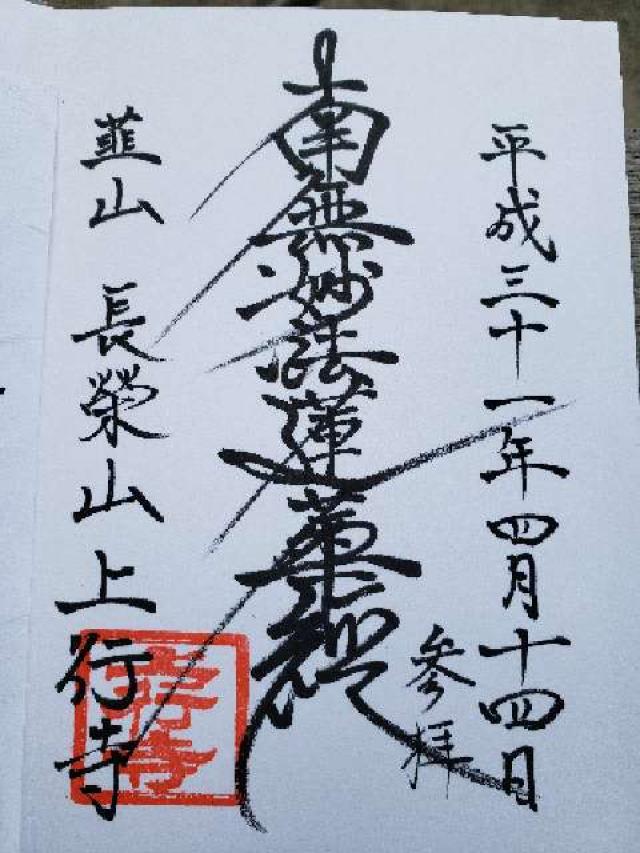 平成三十一年四月十四日
参拝
南無妙法蓮華経
韮山 長榮山上行寺
上行寺